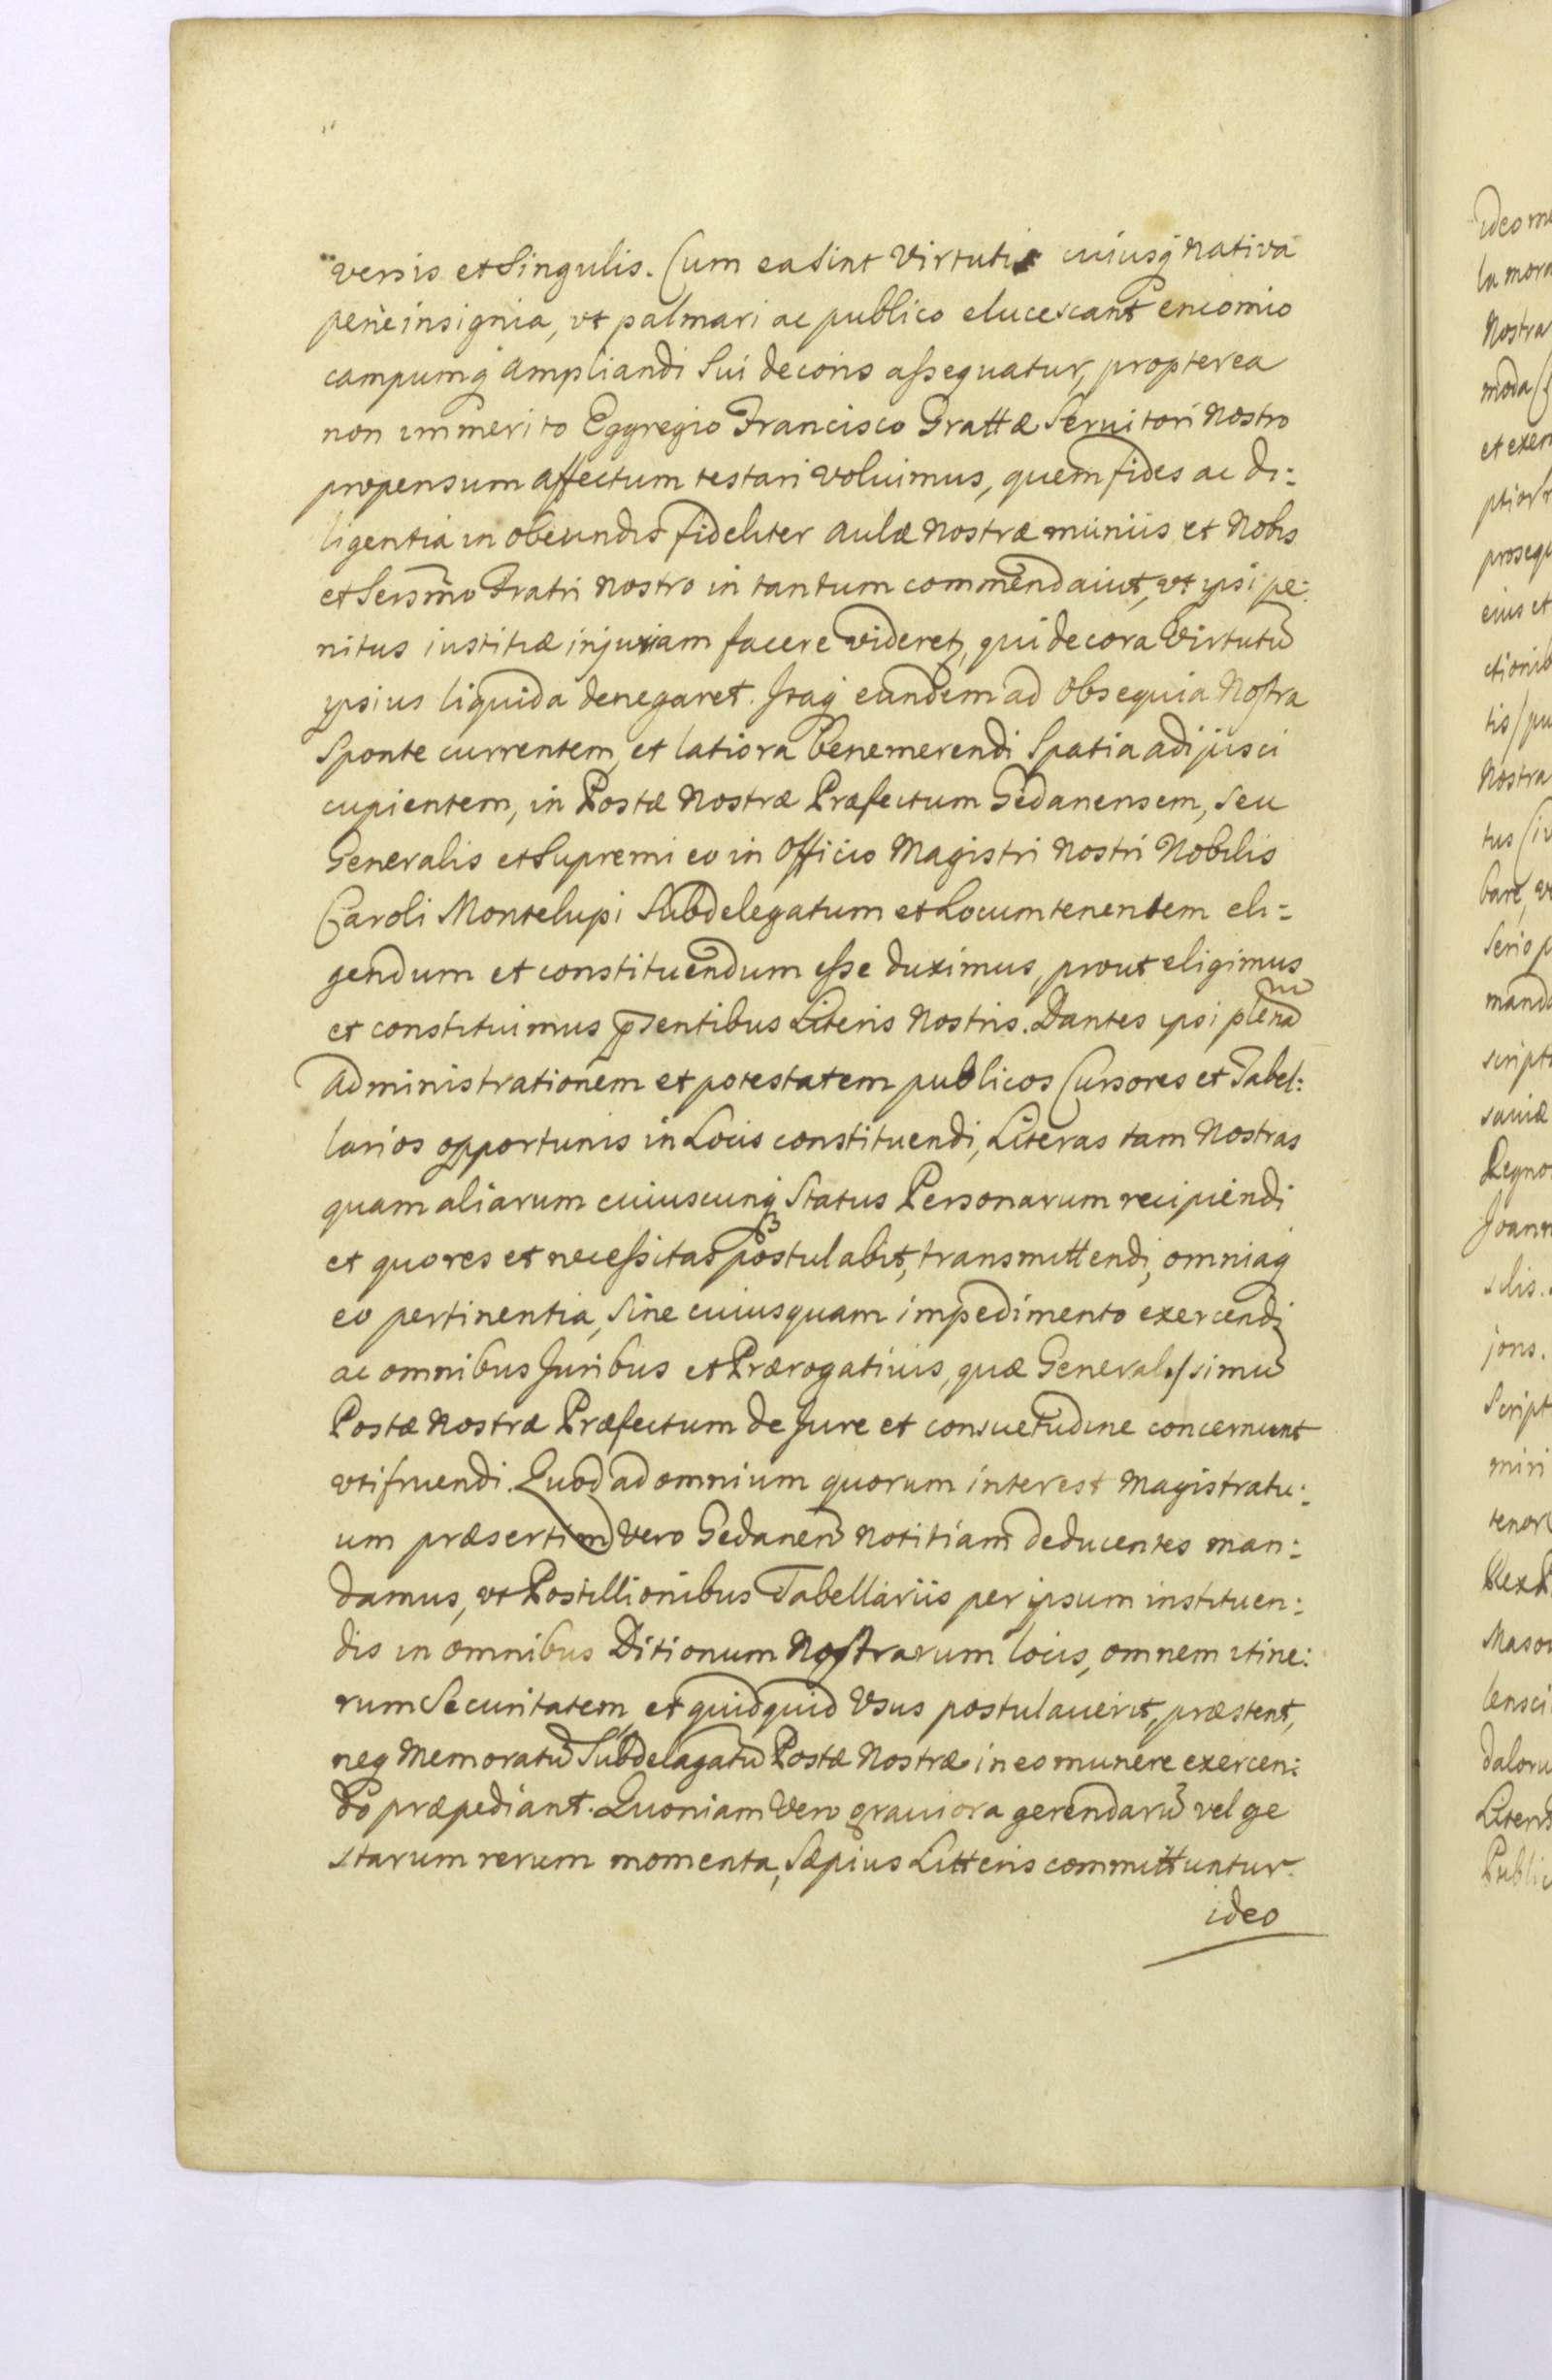 versis et Singulis. Cum ea sint Virtutis cuiusq nativa
penè insignia, vt palmari ac publico elucescant encomio
campumq ampliandi Sui decoris assequatur, propterea
non immerito Eggregio Francisco Grattæ Seruitori Nostro
propensum affectum testari voluimus, quem fides ac di:
ligentia in obeundis fideliter Aulæ Nostræ muniis et Nobis
et Sersmo Fratri Nostro in tantum commendauit, vt ipsi pe:
nitus iustitiæ injuriam facere videret, qui decora Virtutũ
ipsius liquida denegaret. Itaq eundem ad Obsequia Nostra
Sponte currentem, et latiora benemerendi Spatia adipisci
cupientem, in Postæ Nostræ Præfectum Gedanensem, seu
Generalis et Supremi eo in Officio Magistri Nostri Nobilis
Caroli Montelupi Subdelegatum et Locumtenentem eli:
gendum et constituendum esse duximus, prout eligimus
et constituimus p̃sentibus Literis Nostris. Dantes ipsi plenã
administrationem et potestatem publicos Cursores et Tabel:
larios opportunis in Locis constituendi, Literas tam Nostras
quam aliarum cuiuscunq Status Personarum recipiendi
et quo res et necessitas postulabit, transmittendi, omniaq
eo pertinentia, Sine cuiusquam impedimento exercendi
ac omnibus Juribus et Prærogatiuis, quæ Generalissimũ
Postæ Nostræ Præfectum de Jure et consuetudine concernunt
vtifruendi. Quod ad omnium quorum interest Magistratu:
um præsertim vero Gedaneñ Notitiam deducentes man:
damus, vt Postillionibus Tabellariis per ipsum instituen:
dis in omnibus Ditionum Nostrarum locis, omnem itine:
rum Securitatem, et quidquid Vsus postulauerit, præstent,
neq Memoratũ Subdelagatũ Postæ Nostræ in eo munere exercen:
do præpediant. Quoniam Vero grauiora gerendarũ vel ge
starum rerum momenta, Sæpius Litteris committuntur.
ideo